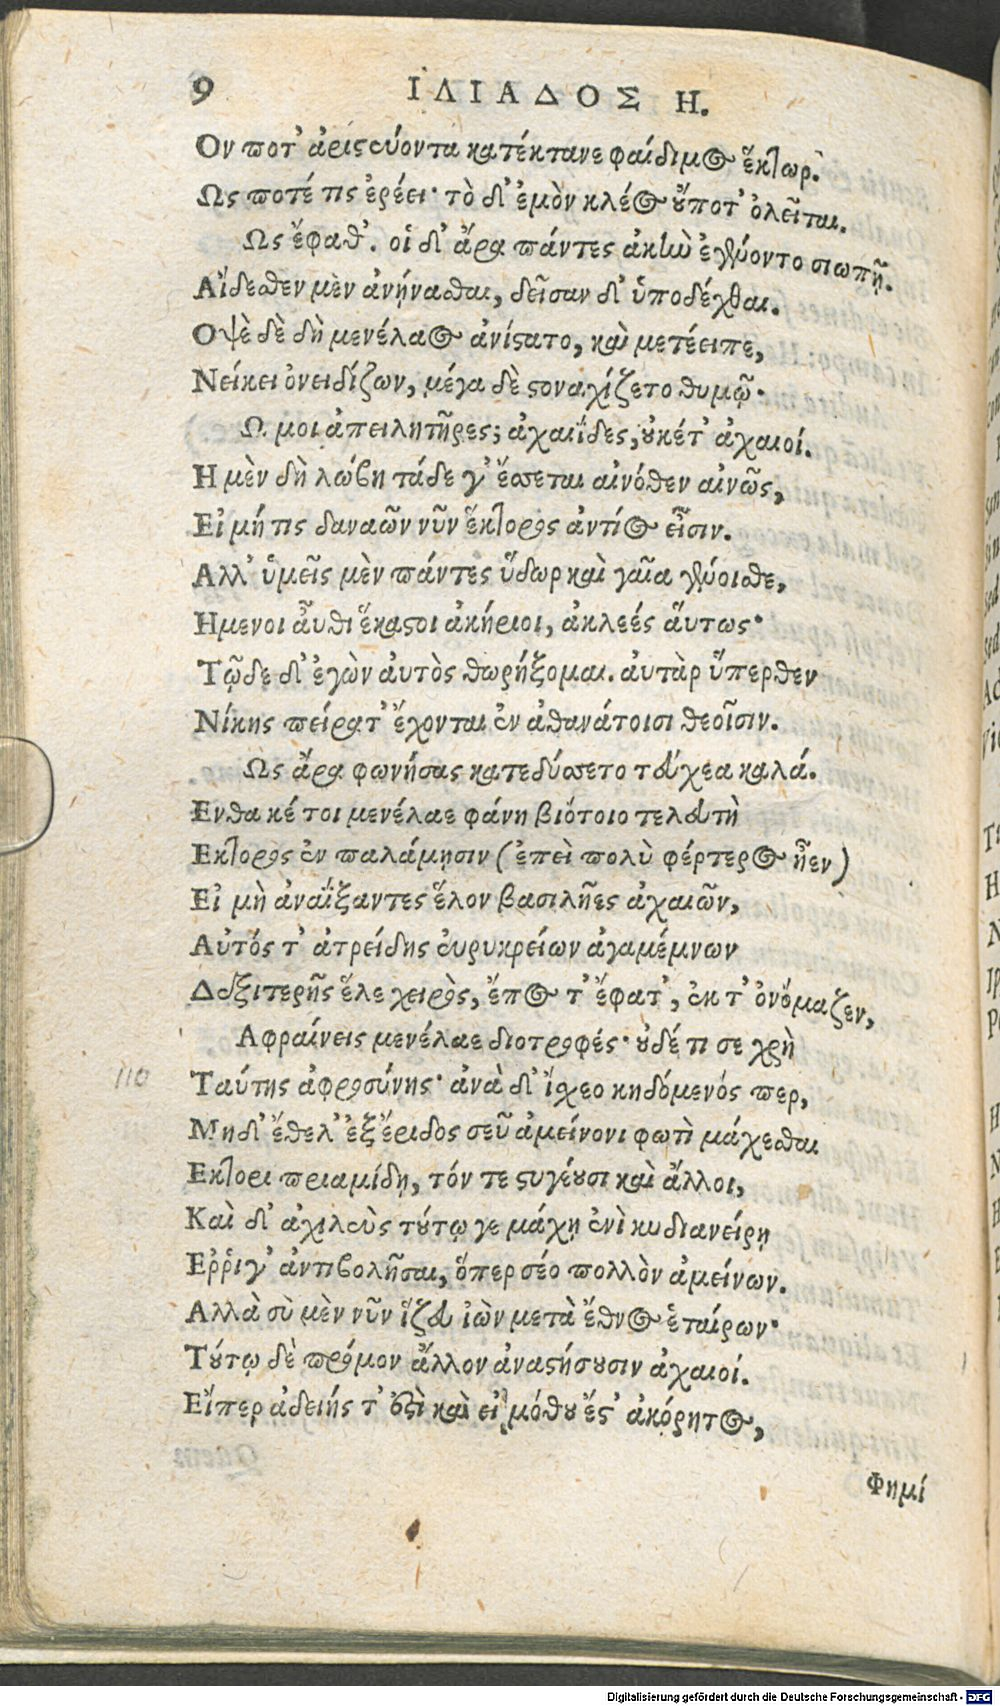 9 ΙΛΙΑΔΟΣ Η.
Ον ποτ' ἀριστεύοντα κατέκτανε φαίδιμος ἕκτωρ.
Ως ποτέ τις ἐρέει· τὸ δ' ἐμὸν κλέος οὔποτ' ὀλεῖται.
Ως ἔφαθ'. οἱ δ' ἄρα πάντες ἀκὴν ἐγένοντο σιωπῇ.
Αἴδεσθεν μὲν ἀνήνασθαι, δεῖσαν δ' ὑποδέχθαι.
Οψὲ δὲ δὴ μενέλαος ἀνίστατο, καὶ μετέειπε,
Νείκει ὀνειδίζων, μέγα δὲ στοναχίζετο θυμῷ·
Ω μοι ἀπειλητῆρες; ἀχαιΐδες, οὐκέτ' ἀχαιοί.
Η μὲν δὴ λώβη τάδε γ' ἔσσεται αἰνόθεν αἰνῶς,
Εἰ μή τις δαναῶν νῦν ἕκτορος ἀντίος εἶσιν.
Αλλ' ὑμεῖς μὲν πάντες ὕδωρ καὶ γαῖα γένοισθε,
Ημενοι αὖθι ἕκαστοι ἀκήριοι, ἀκλεές αὔτως·
Τῷδε δ' ἐγὼν αὐτὸς θωρήξομαι. αὐτὰρ ὕπερθεν
Νίκης πείρατ' ἔχονται ἐν ἀθανάτοισι θεοῖσιν.
Ως ἄρα φωνήσας κατεδύσετο τεύχεα καλά.
Ενθα κέ τοι μενέλαε φάνη βιότοιο τελευτὴ
Εκτορος ἐν παλάμησιν (ἐπεὶ πολὺ φέρτερος ἦεν)
Εἰ μὴ ἀναΐξαντες ἕλον βασιλῆες ἀχαιῶν,
Αὐτός τ' ἀτρείδης εὐρυκρείων ἀγαμέμνων
Δεξιτερῆς ἕλε χειρὸς, ἔπος τ' ἔφατ', ἐκ τ' ὀνόμαζεν,
Αφραίνεις μενέλαε διοτρεφές· οὐδέ τι σε χρὴ
110 Ταύτης ἀφροσύνης· ἀνὰ δ' ἴσχεο κηδόμενός περ,
Μηδ' ἔθελ' ἐξ ἔριδος σεῦ ἀμείνονι φωτὶ μάχεσθαι
Εκτορι πριαμίδῃ, τόν τε στυγέουσι καὶ ἄλλοι,
Καὶ δ' ἀχιλεὺς τούτῳ γε μάχῃ ἐνὶ κυδιανείρῃ
Εῤῥιγ' ἀντιβολῆσαι, ὅπερ σέο πολλὸν ἀμείνων.
Αλλὰ σὺ μὲν νῦν ἵζευ ἰὼν μετὰ ἔθνος ἑταίρων·
Τούτῳ δὲ πρόμον ἄλλον ἀναστήσουσιν ἀχαιοί.
Εἴπερ ἀδειής τ' ἐστὶ καὶ εἰ μόθου ἔστ' ἀκόρητος,
Φημί
Digitalisierung gefördert durch die Deutsche Forschungsgemeinschaft - DFG